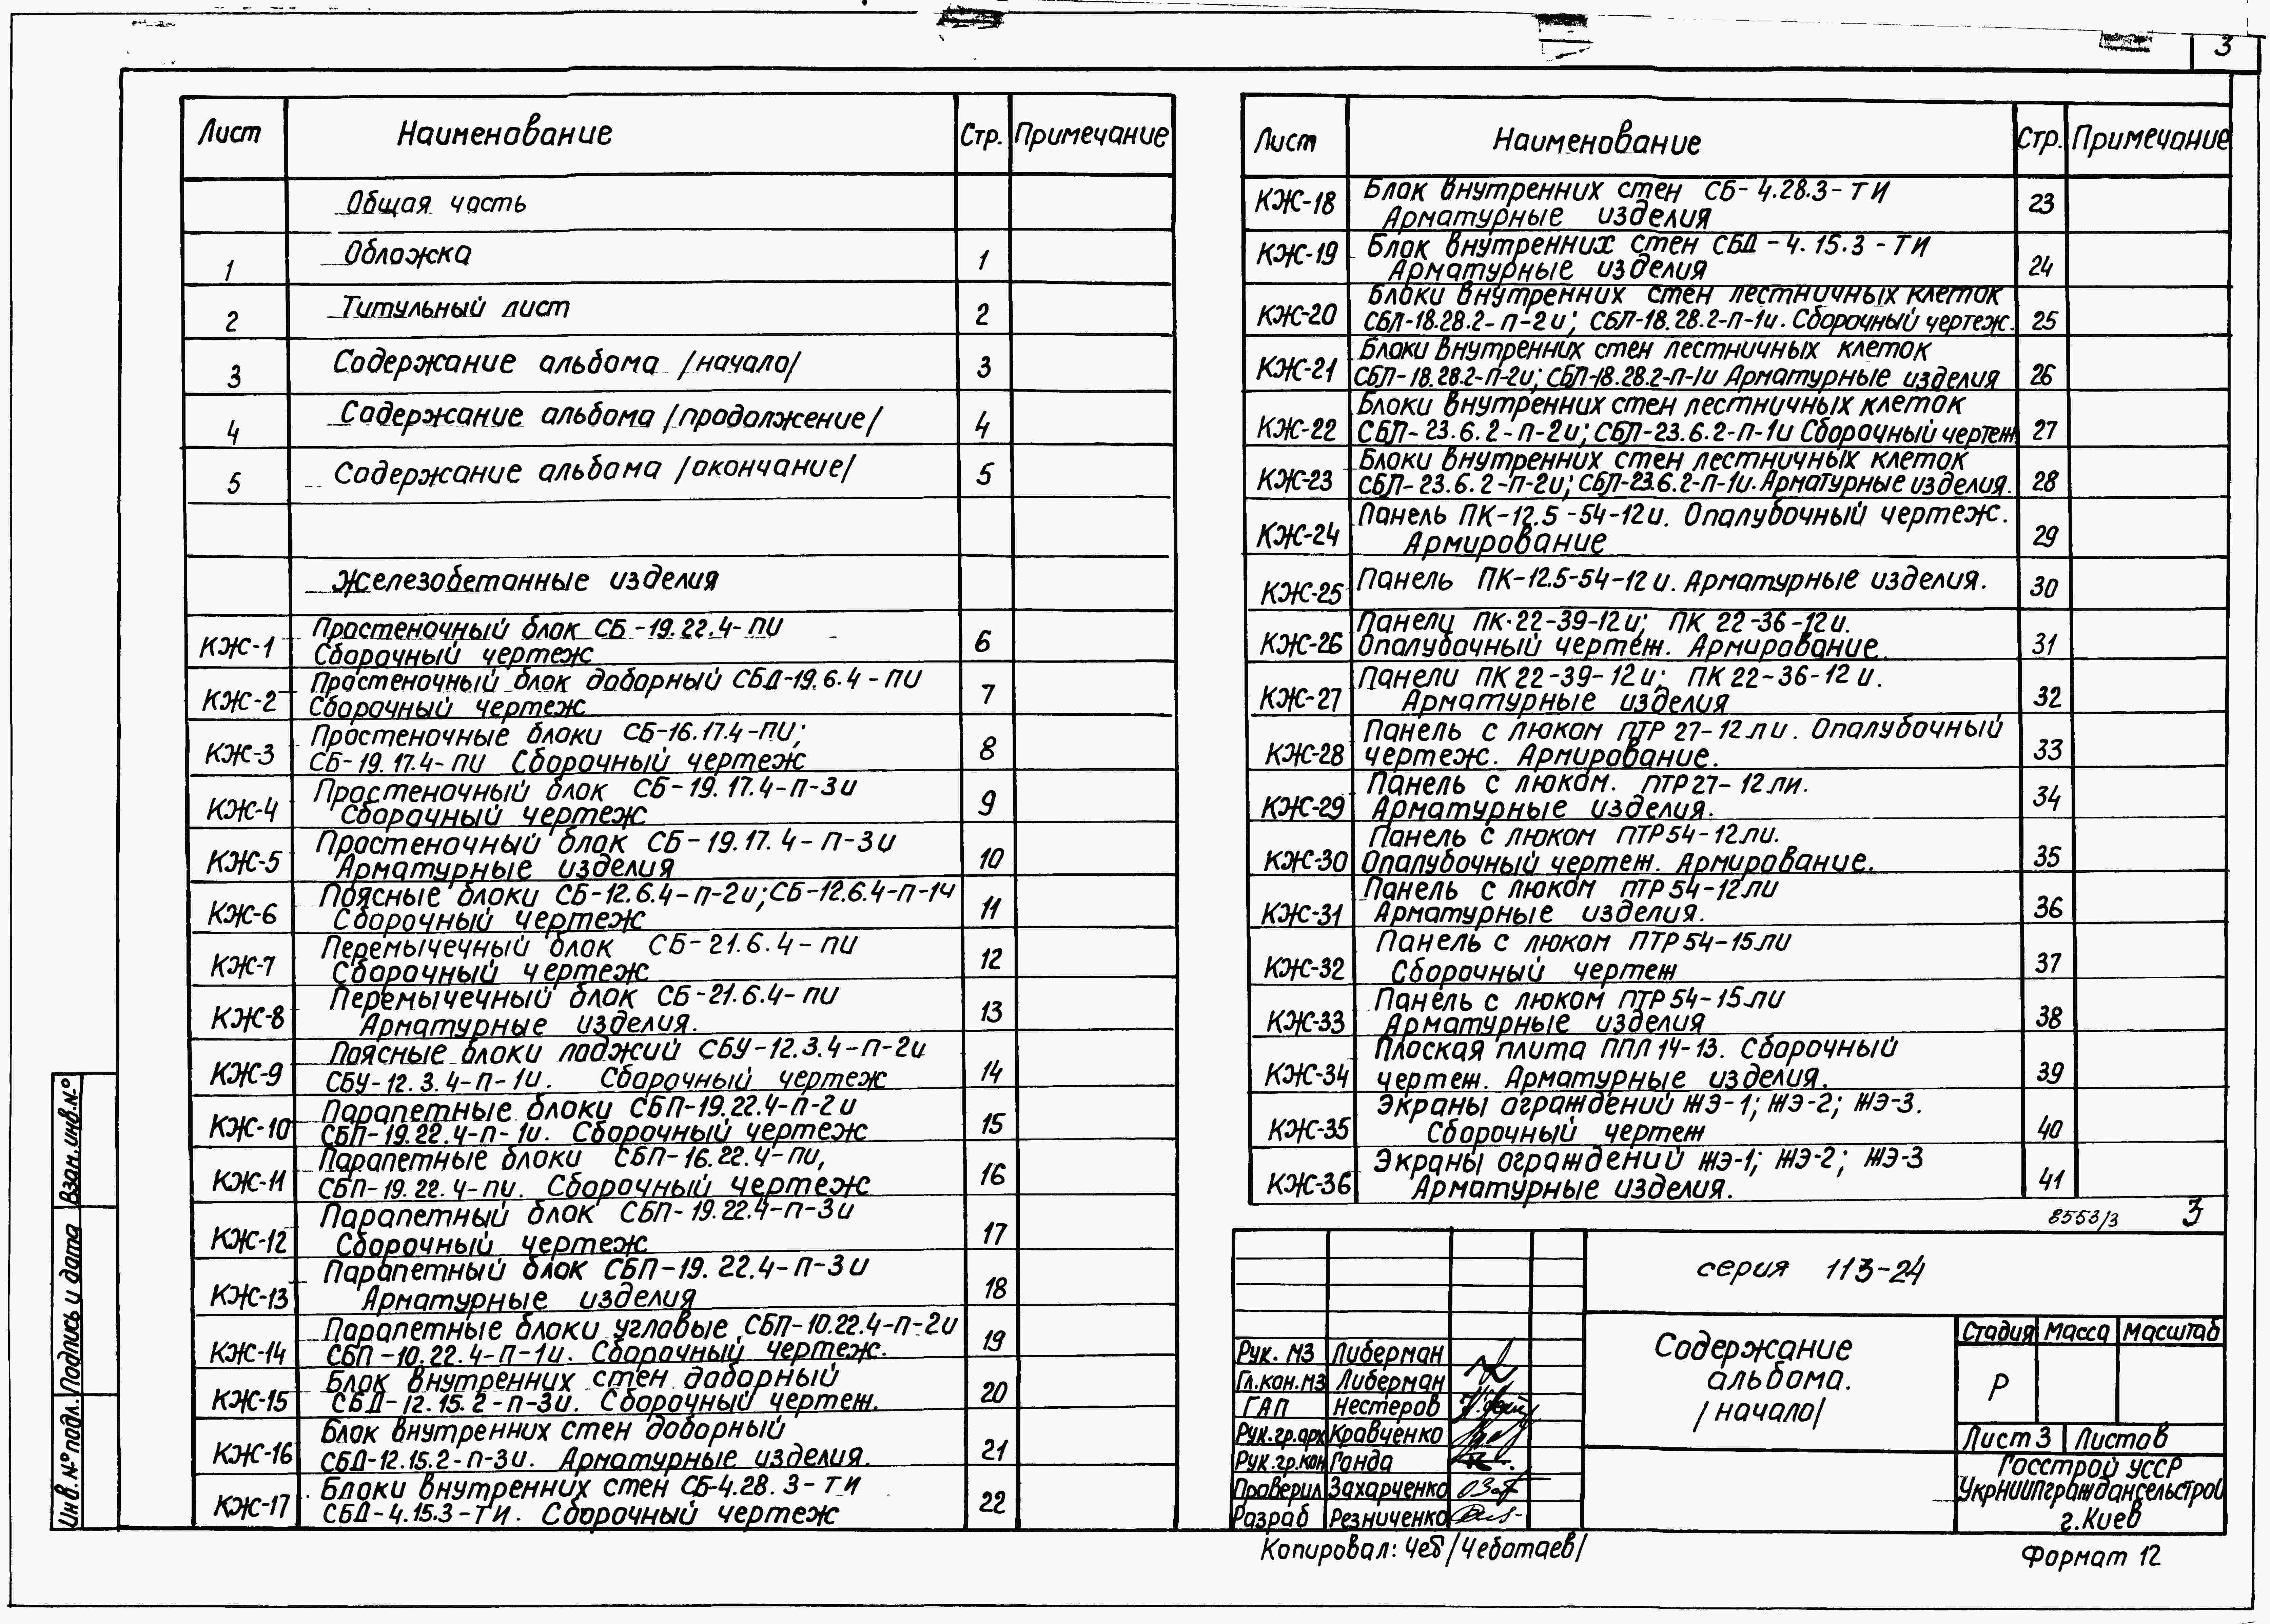 3
Лист Наименование Стр. Примечание
Общая часть
1 Обложка 1
2 Титульный лист 2
3 Содержание альбома /начало/ 3
4 Содержание альбома /продолжение/ 4
5 Содержание альбома /окончание/ 5
Железобетонные изделия
КЖ-1 Простеночный блок СБ-19.22.4-ПИ 6
Сборочный чертеж
КЖ-2 Простеночный блок доборный СБД-19.6.4-ПИ 7
Сборочный чертеж
КЖ-3 Простеночные блоки СБ-16.17.4-ПИ; 8
СБ-19.17.4-ПИ Сборочный чертеж
КЖ-4 Простеночный блок СБ-19.17.4-П-3и 9
Сборочный чертеж
КЖ-5 Простеночный блок СБ-19.17.4-П-3и 10
Арматурные изделия
КЖ-6 Поясные блоки СБ-12.6.4-П-2и; СБ-12.6.4-П-1и 11
Сборочный чертеж
КЖ-7 Перемычечный блок СБ-21.6.4-ПИ 12
Сборочный чертеж
КЖ-8 Перемычечный блок СБ-21.6.4-ПИ 13
Арматурные изделия.
КЖ-9 Поясные блоки лоджий СБУ-12.3.4-П-2и 14
СБУ-12.3.4-П-1и. Сборочный чертеж
КЖ-10 Парапетные блоки СБП-19.22.4-П-2и 15
СБП-19.22.4-П-1и. Сборочный чертеж
КЖ-11 Парапетные блоки СБП-16.22.4-ПИ, 16
СБП-19.22.4-ПИ. Сборочный чертеж
КЖ-12 Парапетный блок СБП-19.22.4-П-3и 17
Сборочный чертеж
КЖ-13 Парапетный блок СБП-19.22.4-П-3и 18
Арматурные изделия
КЖ-14 Парапетные блоки угловые СБП-10.22.4-П-2и 19
СБП-10.22.4-П-1и. Сборочный чертеж.
КЖ-15 Блок внутренних стен доборный 20
СБД-12.15.2-П-3и. Сборочный чертеж.
КЖ-16 Блок внутренних стен доборный 21
СБД-12.15.2-П-3и. Арматурные изделия.
КЖ-17 Блоки внутренних стен СБ-4.28.3-ТИ 22
СБД-4.15.3-ТИ. Сборочный чертеж
Лист Наименование Стр. Примечание
КЖ-18 Блок внутренних стен СБ-4.28.3-ТИ 23
Арматурные изделия
КЖ-19 Блок внутренних стен СБД-4.15.3-ТИ 24
Арматурные изделия
КЖ-20 Блоки внутренних стен лестничных клеток 25
СБЛ-18.28.2-П-2и; СБЛ-18.28.2-П-1и. Сборочный чертеж.
КЖ-21 Блоки внутренних стен лестничных клеток 26
СБЛ-18.28.2-П-2и; СБЛ-18.28.2-П-1и Арматурные изделия
КЖ-22 Блоки внутренних стен лестничных клеток 27
СБЛ-23.6.2-П-2и; СБЛ-23.6.2-П-1и Сборочный чертеж
КЖ-23 Блоки внутренних стен лестничных клеток 28
СБЛ-23.6.2-П-2и; СБЛ-23.6.2-П-1и. Арматурные изделия.
КЖ-24 Панель ПК-12.5-54-12и. Опалубочный чертеж. 29
Армирование
КЖ-25 Панель ПК-12.5-54-12и. Арматурные изделия. 30
КЖ-26 Панели ПК-22-39-12и; ПК 22-36-12и. 31
Опалубочный чертеж. Армирование.
КЖ-27 Панели ПК 22-39-12и; ПК 22-36-12и. 32
Арматурные изделия
КЖ-28 Панель с люком ПТР 27-12ли. Опалубочный 33
чертеж. Армирование.
КЖ-29 Панель с люком. ПТР 27-12ли. 34
Арматурные изделия.
КЖ-30 Панель с люком ПТР 54-12ли. 35
Опалубочный чертеж. Армирование.
КЖ-31 Панель с люком ПТР 54-12ли 36
Арматурные изделия.
КЖ-32 Панель с люком ПТР 54-15ли 37
Сборочный чертеж
КЖ-33 Панель с люком ПТР 54-15ли 38
Арматурные изделия
КЖ-34 Плоская плита ППЛ 14-13. Сборочный 39
чертеж. Арматурные изделия.
КЖ-35 Экраны ограждений ЖЭ-1; ЖЭ-2; ЖЭ-3. 40
Сборочный чертеж
КЖ-36 Экраны ограждений ЖЭ-1; ЖЭ-2; ЖЭ-3 41
Арматурные изделия.
8553/3 3
серия 113-24
Содержание
альбома.
/начало/
Стадия Масса Масштаб
Р
Лист 3 Листов
Госстрой УССР
УкрНИИПграждансельстрой
г. Киев
Рук. МЗ Либерман
Гл.кон.МЗ Либерман
ГАП Нестеров
Рук.гр.арх Кравченко
Рук.гр.кон Ганда
Проверил Захарченко
Разраб Резниченко
Копировал: Чеб /Чеботаев/
Формат 12
Взам.инв.№
Подпись и дата
Инв.№ подл.